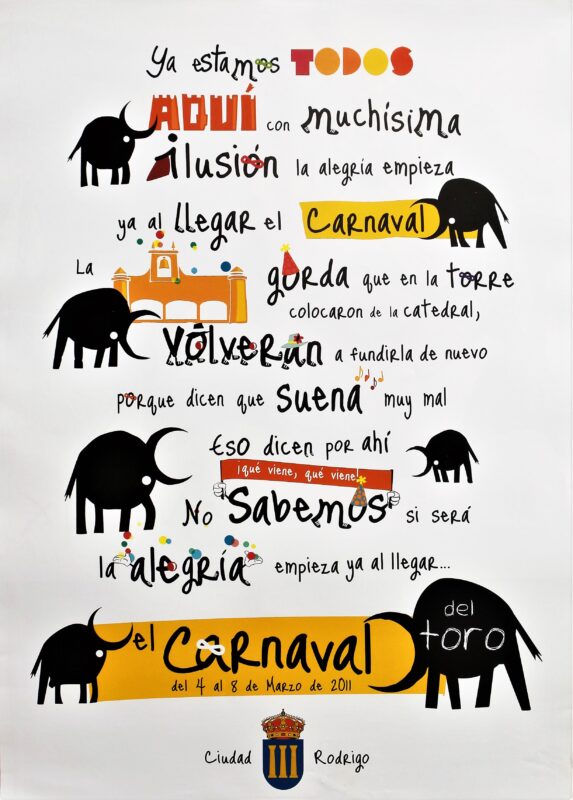 Ya estamos TODOS
AQUÍ con muchísima
ilusión la alegría empieza
ya al llegar el Carnaval
La gorda que en la torre
colocaron de la catedral,
Volverán a fundirla de nuevo
porque dicen que suena muy mal
Eso dicen por ahí
¡qué viene, qué viene!
No Sabemos si será
la alegría empieza ya al llegar...
el Carnaval del toro
del 4 al 8 de Marzo de 2011
Ciudad Rodrigo
III